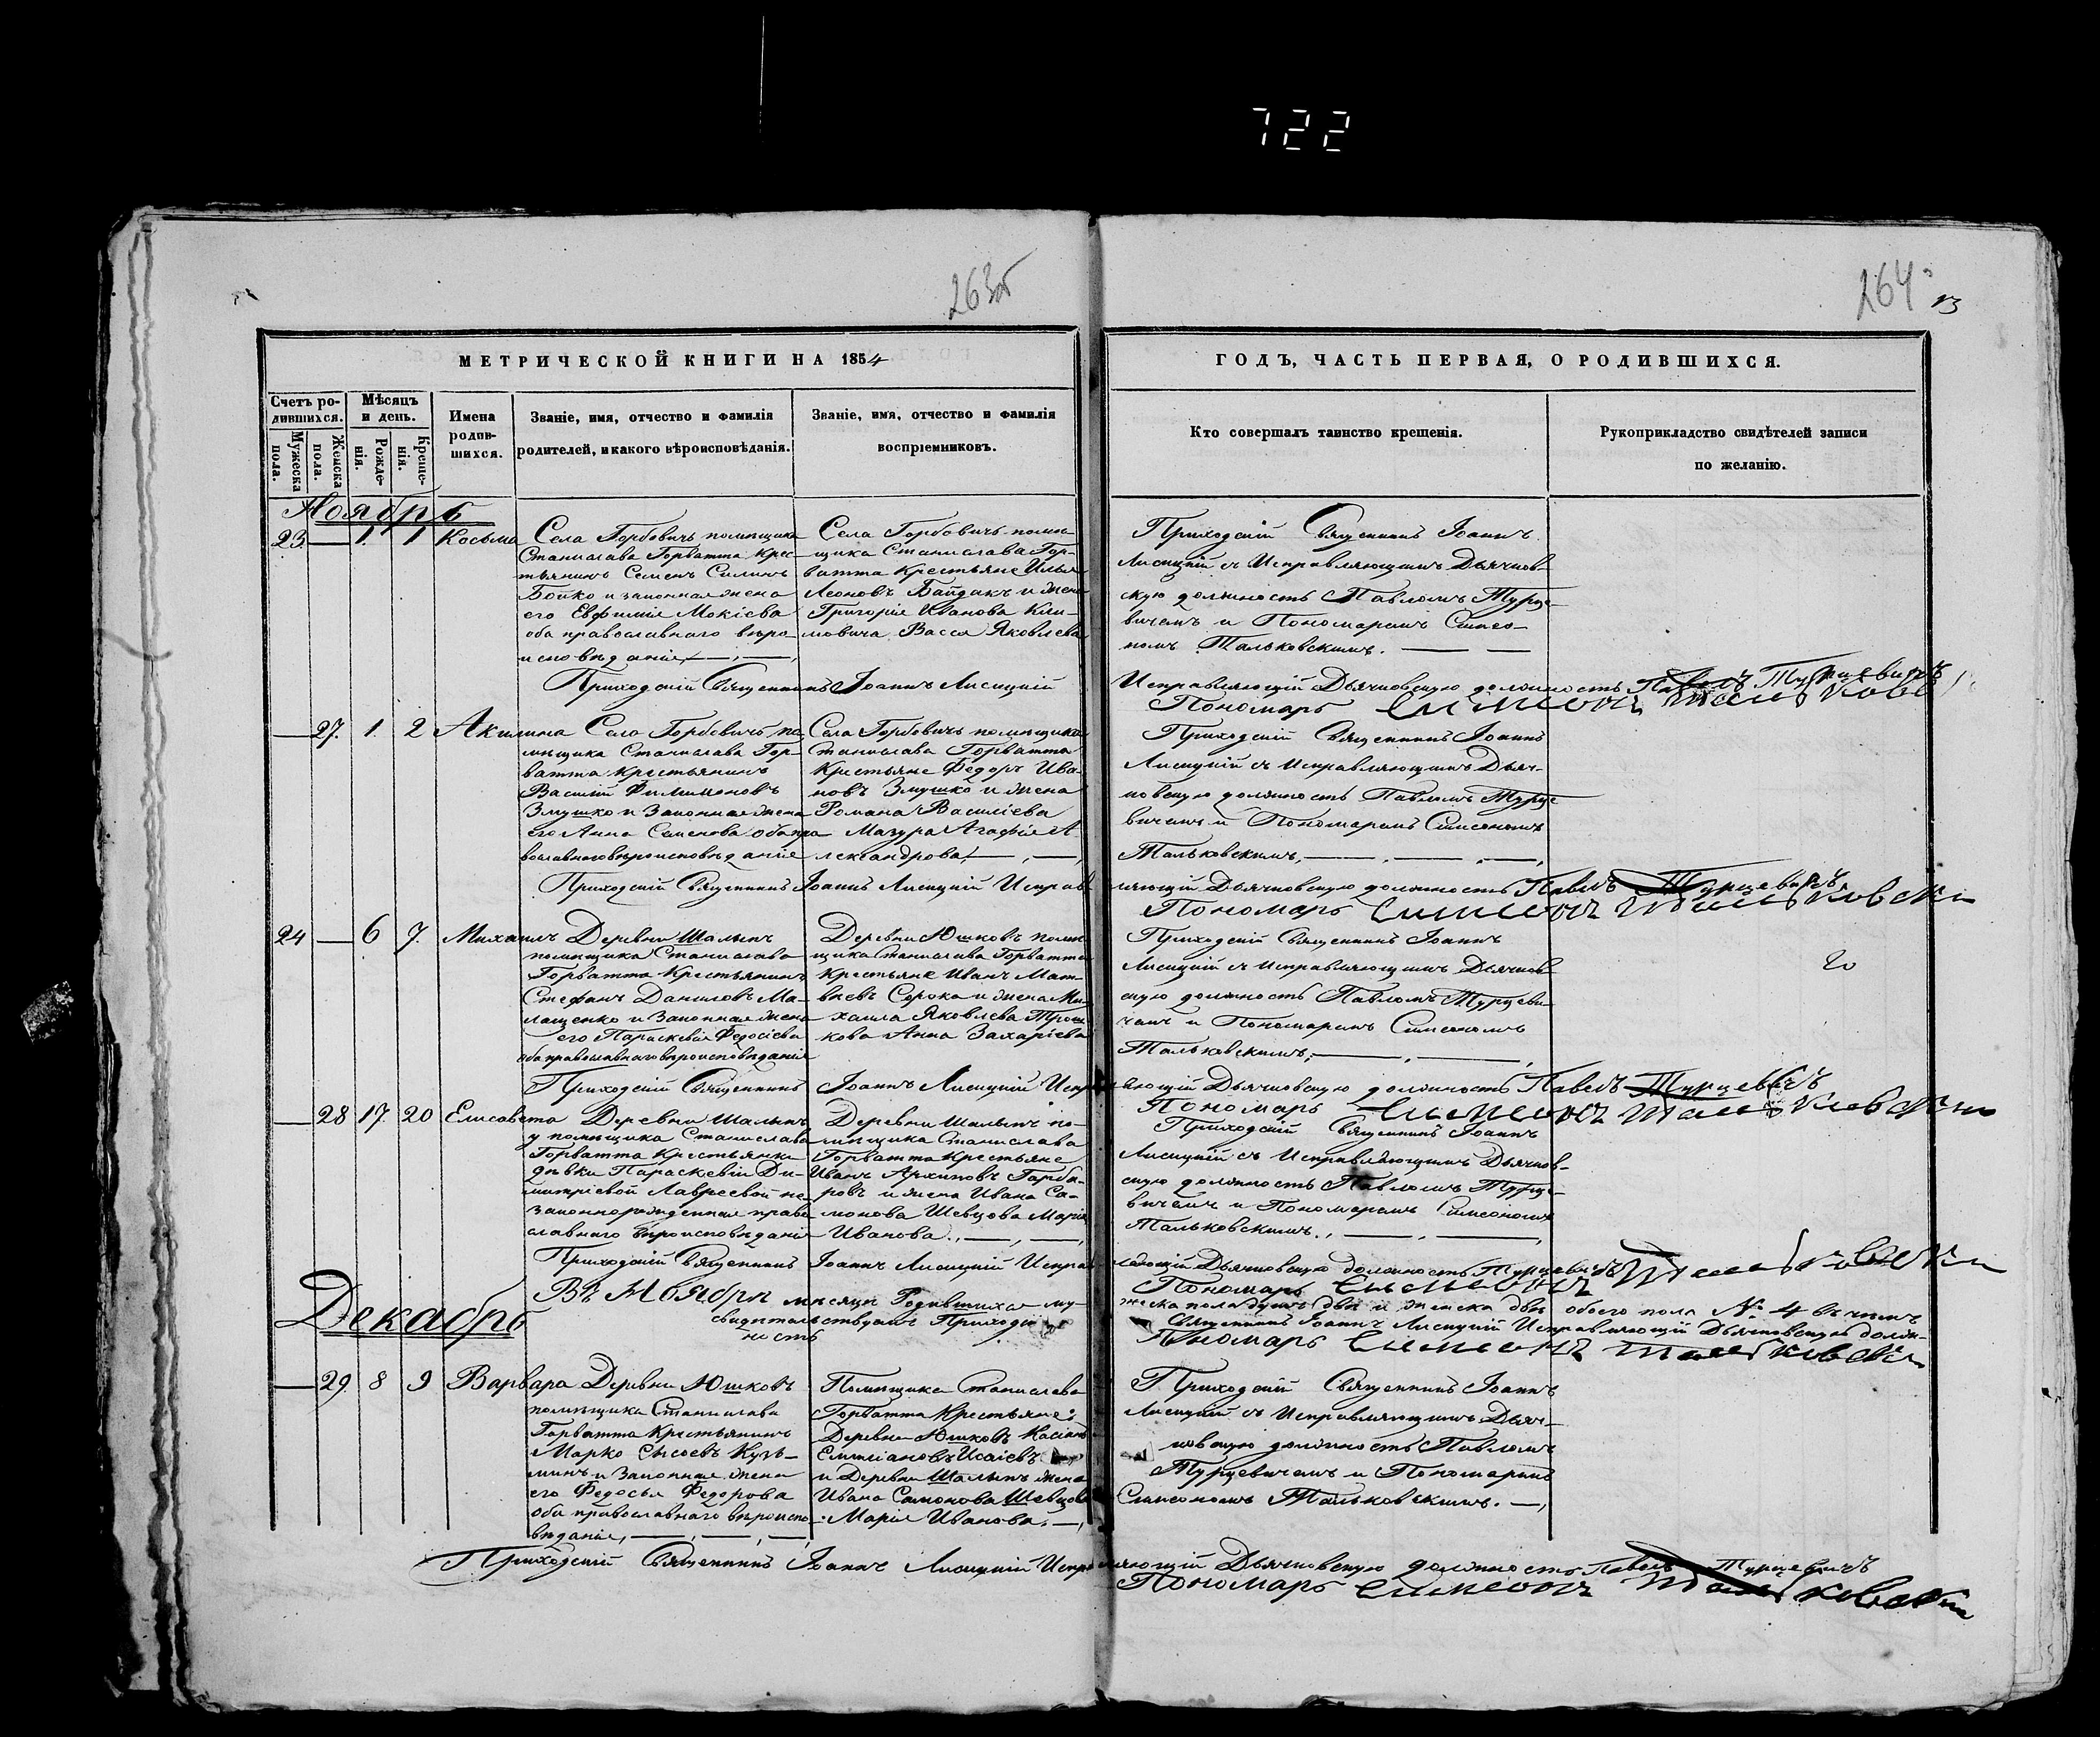 722
263об
264
13
МЕТРИЧЕСКОЙ КНИГИ НА 1854
ГОДЪ, ЧАСТЬ ПЕРВАЯ, О РОДИВШИХСЯ.
Счетъ ро-
дившихся.
Мужеска
пола.
Женска
пола.
Мѣсяцъ
и день.
Рожде-
нія.
Креще-
нія.
Имена
родив-
шихся.
Званіе, имя, отчество и фамилія
родителей, и какого вѣроисповѣданія.
Званіе, имя, отчество и фамилія
воспріемниковъ.
Кто совершалъ таинство крещенія.
Рукоприкладство свидѣтелей записи
по желанію.
Ноябрь
23. — 1. 1 Косьма
Села Горбовичъ помѣщика
Станислава Горватта Крес-
тьянинъ Семенъ Силинъ
Бойко и законная жена
его Евфимія Мокіева
оба православнаго вѣро-
исповѣданія,
Села Горбовичъ помѣ-
щика Станислава Гор-
ватта Крестьяне Илья
Леоновъ Байдакъ и жена
Григорія Иванова Кли-
мовича Васса Яковлева
Приходскій Священникъ Іоаннъ
Лисицкій съ Исправляющимъ Дьячков-
скую должность Павломъ Турце-
вичемъ и Пономаремъ Симео-
номъ Тальковскимъ.
Приходскій Священникъ Іоаннъ Лисицкій
Исправляющій Дьячковскую должность Павелъ Турцевичъ
Пономарь Симеонъ Тальковскі
— 27. 1. 2 Акилина
Села Горбовичъ по-
мѣщика Станислава Гор-
ватта крестьянинъ
Василій Филимоновъ
Змушко и Законная жена
его Анна Семенова оба пра
вославнаго вѣроисповѣданія
Села Горбовичъ помѣщика
Станислава Горватта
Крестьяне Федоръ Ива-
новъ Змушко и жена
Романа Василіева
Мазура Агафія А
лександрова,
Приходскій Священникъ Іоаннъ
Лисицкій съ Исправляющимъ Дьяч-
ковскую должность Павломъ Турце
вичемъ и Пономаремъ Симеономъ
Тальковскимъ,
Приходскій Священникъ Іоаннъ Лисицкій Исправляющій Дьячковскую должность Павелъ Турцевичъ
Пономарь Симеонъ Тальковскій
24 — 6 7. Михаилъ
Деревни Шалыпъ
помѣщика Станислава
Горватта Крестьянинъ
Стефанъ Даниловъ Ма-
лащенко и Законная жена
его Параскевія Федосіева
оба православнаго вѣроисповѣданія
Деревни Юшковъ помѣ-
щика Станислава Горватта
Крестьяне Иванъ Мат-
вѣевъ Сорока и жена Ми-
хаила Яковлева
кова Анна Захаріева
Приходскій Священникъ Іоаннъ
Лисицкій съ Исправляющимъ Дьячков-
скую должность Павломъ Турцеви-
чемъ и Пономаремъ Симеономъ
Тальковскимъ,
Приходскій Священникъ Іоаннъ Лисицкій Исправляющій Дьячковскую должность Павелъ Турцевичъ
Пономарь Симеонъ Тальковскій
— 28 17. 20 Елисавета
Деревни Шалыпъ
у помѣщика Станислава
Горватта Крестьянки
дѣвки Параскевіи Ди-
митріевой Лавреевой не-
законнорожденная право
славнаго вѣроисповѣданія
Деревни Шалыпъ по-
мѣщика Станислава
Горватта Крестьяне
Иванъ Архиповъ Горба-
ровъ и жена Ивана Са-
монова Шевцова Марія
Иванова.,
Приходскій Священникъ Іоаннъ
Лисицкій съ Исправляющимъ Дьячков-
скую должность Павломъ Турце-
вичемъ и Пономаремъ Симеономъ
Тальковскимъ.,
Приходскій Священникъ Іоаннъ Лисицкій Исправляющій Дьячковскую должность Турцевичъ
Пономарь Симеонъ Тальковскій
Въ Ноябрѣ мѣсяцѣ Родившихся му-
жеска пола душъ двѣ и женска двѣ обоего пола № 4 въ чемъ
свидѣтельствуемъ Приходскій
Священникъ Іоаннъ Лисицкій Исправляющій Дьячковскую долж-
ность
Пономарь Симеонъ Тальковскій
Декабрь
— 29. 8 9 Варвара
Деревни Юшковъ
помѣщика Станислава
Горватта Крестьянинъ
Марко Сысоевъ Кузь-
минъ и Законная жена
его Федосья Федорова
оба православнаго вѣроиспо-
вѣданія,
Помѣщика Станислава
Горватта Крестьяне:
Деревни Юшковъ Касіанъ
Емиліановъ Исаіевъ
и Деревни Шалыпъ жена
Ивана Самонова Шевцова
Марія Иванова.
Приходскій Священникъ Іоаннъ
Лисицкій съ Исправляющимъ Дьяч-
ковскую должность Павломъ
Турцевичемъ и Пономаремъ
Симеономъ Тальковскимъ.
Приходскій Священникъ Іоаннъ Лисицкій Исправляющій Дьячковскую должность Павелъ Турцевичъ
Пономарь Симеонъ Тальковскій